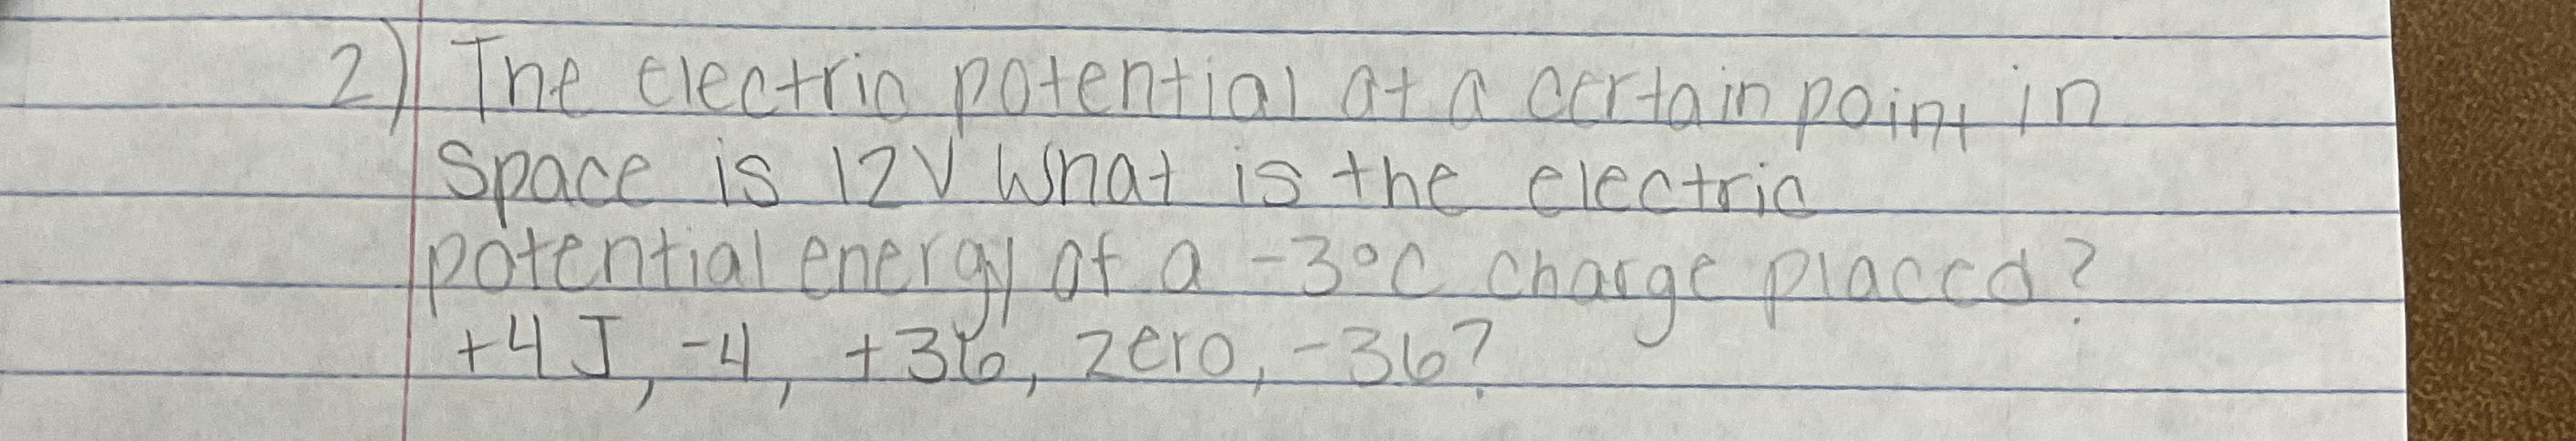 2) The electric potential at a certain point in
space is 12V What is the electric
potential energy of a -3°C charge placed?
+4 J, -4, +36, zero, -36?